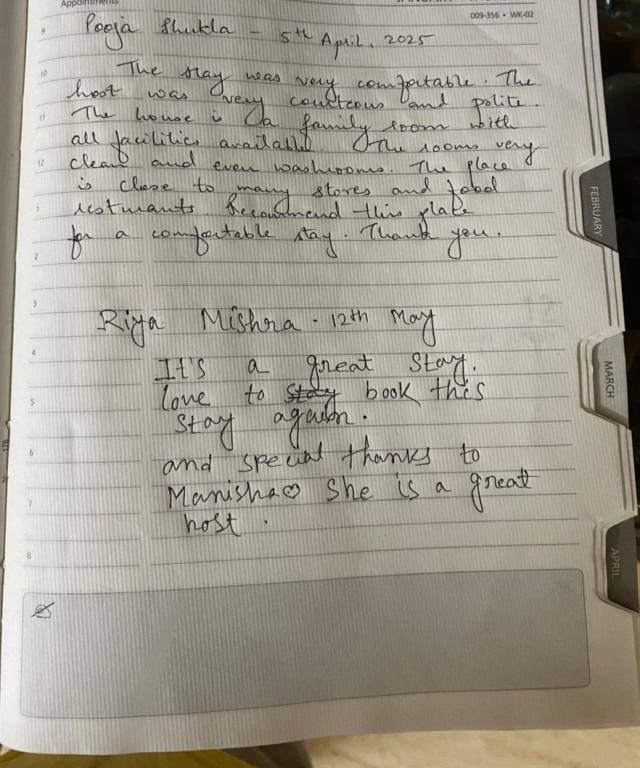 Appointments
009-356 • WK-02
9
Pooja Shukla – 5th April, 2025
10
The stay was very comfortable. The
host was very courteous and polite.
11
The house is a family room with
all facilities available. The rooms very
12
clean and even washrooms. The place
is close to many stores and food
1
resturants. Recommend this place
for a comfortable stay. Thank you.
2
3
Riya Mishra - 12th May
4
It's a great stay.
5
love to stay book this
stay again.
6
and special thanks to
7
Manisha♡ She is a great
host.
8
FEBRUARY
MARCH
APRIL